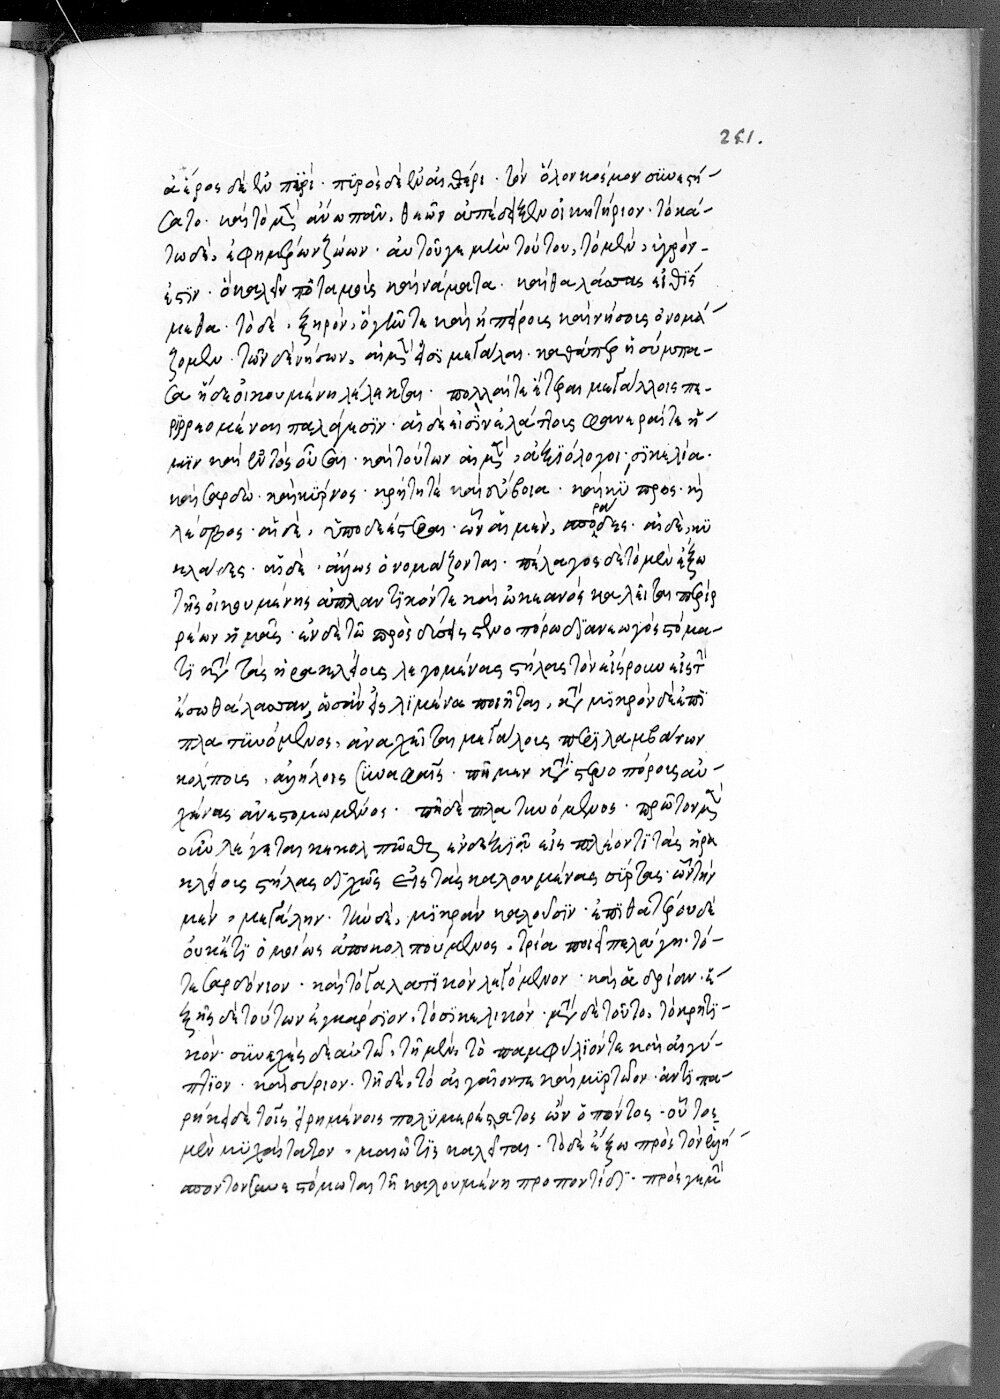 251.
ἀέρος δὲ ἐν πυρὶ· πυρὸς δὲ ἐν αἰθέρι· τὸν ὅλον κόσμον συνεστή-
σατο· καὶ τὸ μὲν ἄνω πᾶν, θεῶν ἀπέδειξεν οἰκητήριον· τὸ κά-
τω δὲ, ἐφημέρων ζώων· αὐτοῦ γε μὴν τούτου, τὸ μὲν, ὑγρόν
ἐστιν· ὃ καλεῖν ποταμοὺς καὶ νάματα· καὶ θαλάσσας εἰθίσ
μεθα· τὸ δὲ, ξηρὸν, ὃ γῆν τε καὶ ἠπείρους καὶ νήσους ὀνομά-
ζομεν· τῶν δὲ νήσων, αἱ μέν εἰσι μεγάλαι· καθάπερ ἡ σύμπα-
σα ἥδε οἰκουμένη λέλεκται· πολλαί τε ἕτεραι μεγάλοις πε-
ριρρεόμεναι πελάγεσιν· αἱ δέ εἰσιν ἐλάττους φανεραί τε ἡ-
μῖν καὶ ἐντὸς οὖσαι· καὶ τούτων αἱ μὲν, ἀξιόλογοι· σικελία·
καὶ σαρδὼ· καὶ κύρνος· κρήτη τὲ καὶ εὔβοια· καὶ κύπρος· κὴ
λέσβος· αἱ δὲ, ὑποδεέστεραι· ὧν αἱ μὲν, σποράδες· αἱ δὲ, κυ
κλάδες· αἱ δὲ· ἄλλως ὀνομάζονται· πέλαγος δὲ τὸ μὲν ἔξω
τῆς οἰκουμένης ἀτλαντικόν τε καὶ ὠκεανὸς καλεῖται περιρ
ρέων ἡμᾶς· ἐν δὲ τῶ πρὸς δύσεις στενοπόρω διανεωγὸς στόμα-
τι κατὰ τὰς ἡρακλείους λεγομένας στήλας τὸν εἴσρουν εἰς τὴν
ἔσω θάλασσαν, ὡσὰν εἰς λιμένα ποιεῖται, κατὰ μικρὸν δὲ ἐπι
πλατυνόμενος, ἀναχεῖται μεγάλους περιλαμβάνων
κόλπους, ἀλλήλοις συναφεῖς· πῆ μὲν κατὰ στενοπόρους αὐ-
χένας ἀνεστομωμένος· πῆ δὲ πλατυνόμενος· πρῶτον μὲν
οὖν λέγεται κεκολπῶσθαι ἐν δεξιᾷ εἰς πλέοντι τὰς ἡρα
κλείους στήλας διχῶς εἰς τὰς καλουμένας σύρτας· ὧν τὴν
μέν, μεγάλην· τὴν δὲ, μικρὰν καλοῦσιν· ἐπὶ θάτερου δὲ
οὐκέτι ὁμοίως ἀποκολπούμενος, τρία ποιεῖ πελάγη· τό-
τε σαρδόνιον· καὶ τὸ γαλατικὸν λεγόμενον· καὶ ἀδρίαν· ἑ-
ξῆς δὲ τούτων ἐγκάρσιον, τὸ σικελικόν· μετὰ δὲ τοῦτο, τὸ κρητι-
κόν· συνεχὲς δὲ αὐτῶ, τῆ μὲν, τὸ παμφύλιόν τε καὶ αἰγύ-
πτιον· καὶ σύριον· τῆ δὲ, τὸ αἰγαῖόν τε καὶ μυρτῶον· ἀντιπα-
ρήκει δὲ τοῖς εἰρημένοις πολυμερέστατος ὢν ὁ πόντος· οὗ τὸ
μὲν μυχαίτατον, μαιῶτις καλεῖται· τὸ δὲ ἔξω πρὸς τὸν ἑλλή-
σποντον συνεστόμωται τῆ καλουμένη προποντίδι· πρός γε μὴν